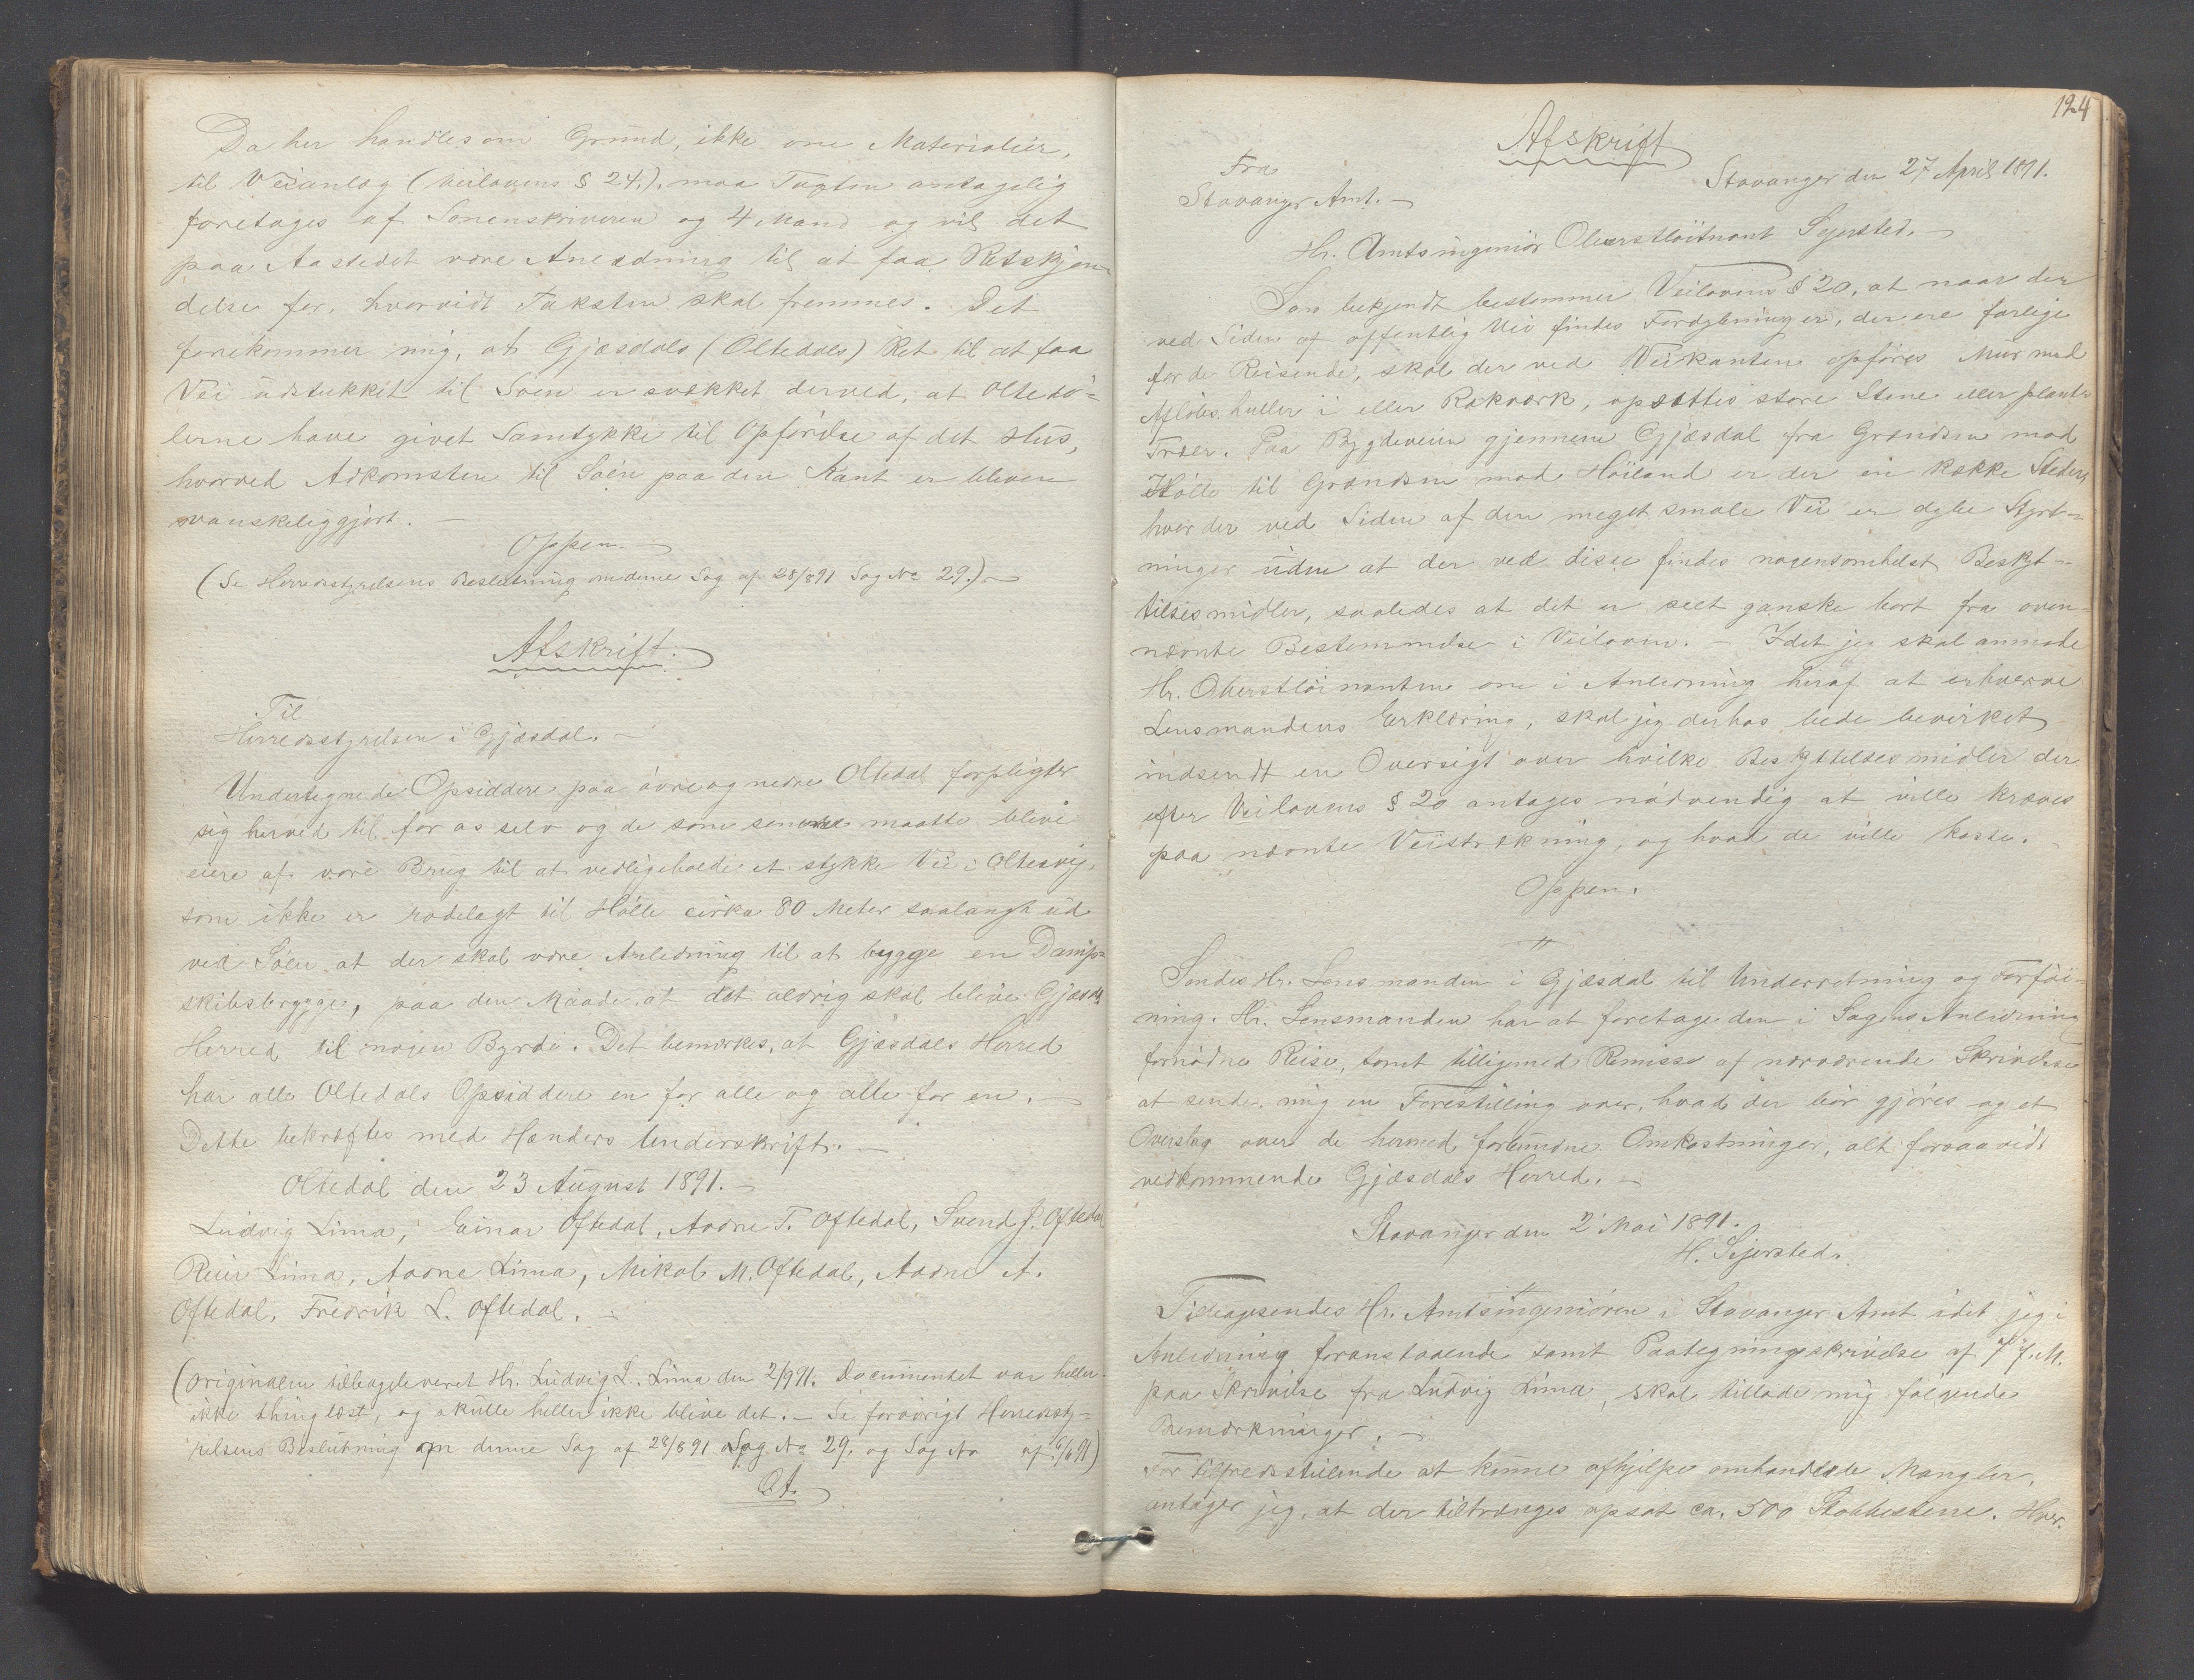 Da her handles om Grund, ikke om Materialier,
til Veianlæg (Veilovens § 24.), maa Taxten antagelig
foretages af Sorenskriveren og 4 Mand og vil det
paa Aastedet være Anledning til at faa Retskjen-
delse for, hvorvidt Taksten skal fremmes. Det
forekommer mig, at Gjæsdals (Oltedals) Ret til at faa
Vei udstukket til Søen er svækket derved, at Oltedø-
lerne have givet Samtykke til Opførelse af det Hus,
hvorved Adkomsten til Søen paa den Kant er bleven
vanskeliggjort. —
Oppen. —
(Se Herredsstyrelsens Beslutning om denne Sag af 28/8 91 Sag No 29.) —
Afskrift.
Til
Herredsstyrelsen i Gjæsdal. —
Undertegnede Opsiddere paa øvre og nedre Oltedal forpligter
sig herved til for os selv og de som senere maatte blive
eiere af vore Brug til at vedligeholde et stykke Vei i Oltesvig,
som ikke er rodelagt til Hølle cirka 80 Meter saalangt ud
ved Søen at der skal være Anledning til at bygge en Damp-
skibsbrygge, paa den Maade at det aldrig skal blive Gjæsdals
Herred til nogen Byrde. Det bemærkes, at Gjæsdals Herred
har alle Oltedals Opsiddere en for alle og alle for en. —
Dette bekræftes med Hænders Underskrift. —
Oltedal den 23 August 1891. —
Ludvig Lima, Einar Oftedal, Aadne T. Oftedal, Svend J. Oftedal
Reier Lima, Aadne Lima, Mikal M. Oftedal, Aadne A.
Oftedal, Fredrik L. Oftedal. —
(Originalen tilbageleveret Hr. Ludvig L. Lima den 2/9 91. Documentet var heller
ikke thinglæst, og skulle heller ikke blive det. — Se forøvrigt Herredssty-
relsens Beslutning om denne Sag af 28/8 91 Sag No 29. og Sag No af 6/6 91)
124
Afskrift
Fra
Stavanger Amt. —
Stavanger den 27 April 1891.
Hr. Amtsingeniør Oberstløitnant Sejersted. —
Som bekjendt bestemmer Veilovens § 20, at naar der
ved Siden af offentlig Vei findes Fordybninger, der ere farlige
for de Reisende, skal der ved Veikanten opføres Mur med
Afløbshuller i eller Rækværk, opsættes store Stene eller plantes
Træer. Paa Bygdeveien gjennem Gjæsdal fra Grændsen mod
Hølle til Grændsen mod Høiland er der en Række Steder,
hvor der ved Siden af den meget smale Vei er dybe Styrt-
ninger uden at der ved disse findes nogensomhelst Beskyt-
telsesmidler, saaledes at det er seet ganske bort fra oven-
nævnte Bestemmelse i Veiloven. — Idet jeg skal anmode
Hr. Oberstløinanten om i Anledning heraf at erhverve
Lensmandens Erklæring, skal jeg derhos bede bevirket
indsendt en Oversigt over hvilke Beskyttelsesmidler der
efter Veilovens § 20 antages nødvendig at ville kræves
paa nævnte Veistrækning, og hvad de ville koste. —
Oppen.
Sendes Hr. Lensmanden i Gjæsdal til Underretning og Forføi-
ning. Hr. Lensmanden har at foretage den i Sagens Anledning
fornødne Reise, samt tilligemed Remisse af nærværende Skrivelse
at sende mig en Forestilling over, hvad der bør gjøres og et
Overslag over de hermed forbundne Omkostninger, alt forsaavidt
vedkommende Gjæsdals Herred. —
Stavanger den 2 Mai 1891.
H. Sejersted.
Tilbagesendes Hr. Amtsingeniøren i Stavanger Amt idet jeg i
Anledning foranstaaende samt Paategningsskrivelse af 7 f. M.
paa Skrivelse fra Ludvig Lima, skal tillade mig følgende
Bemærkninger. —
For tilfredsstillende at kunne afhjelpe omhandlede Mangler,
antager jeg, at der tiltrænges opsat ca. 500 Stabbestene. Hver